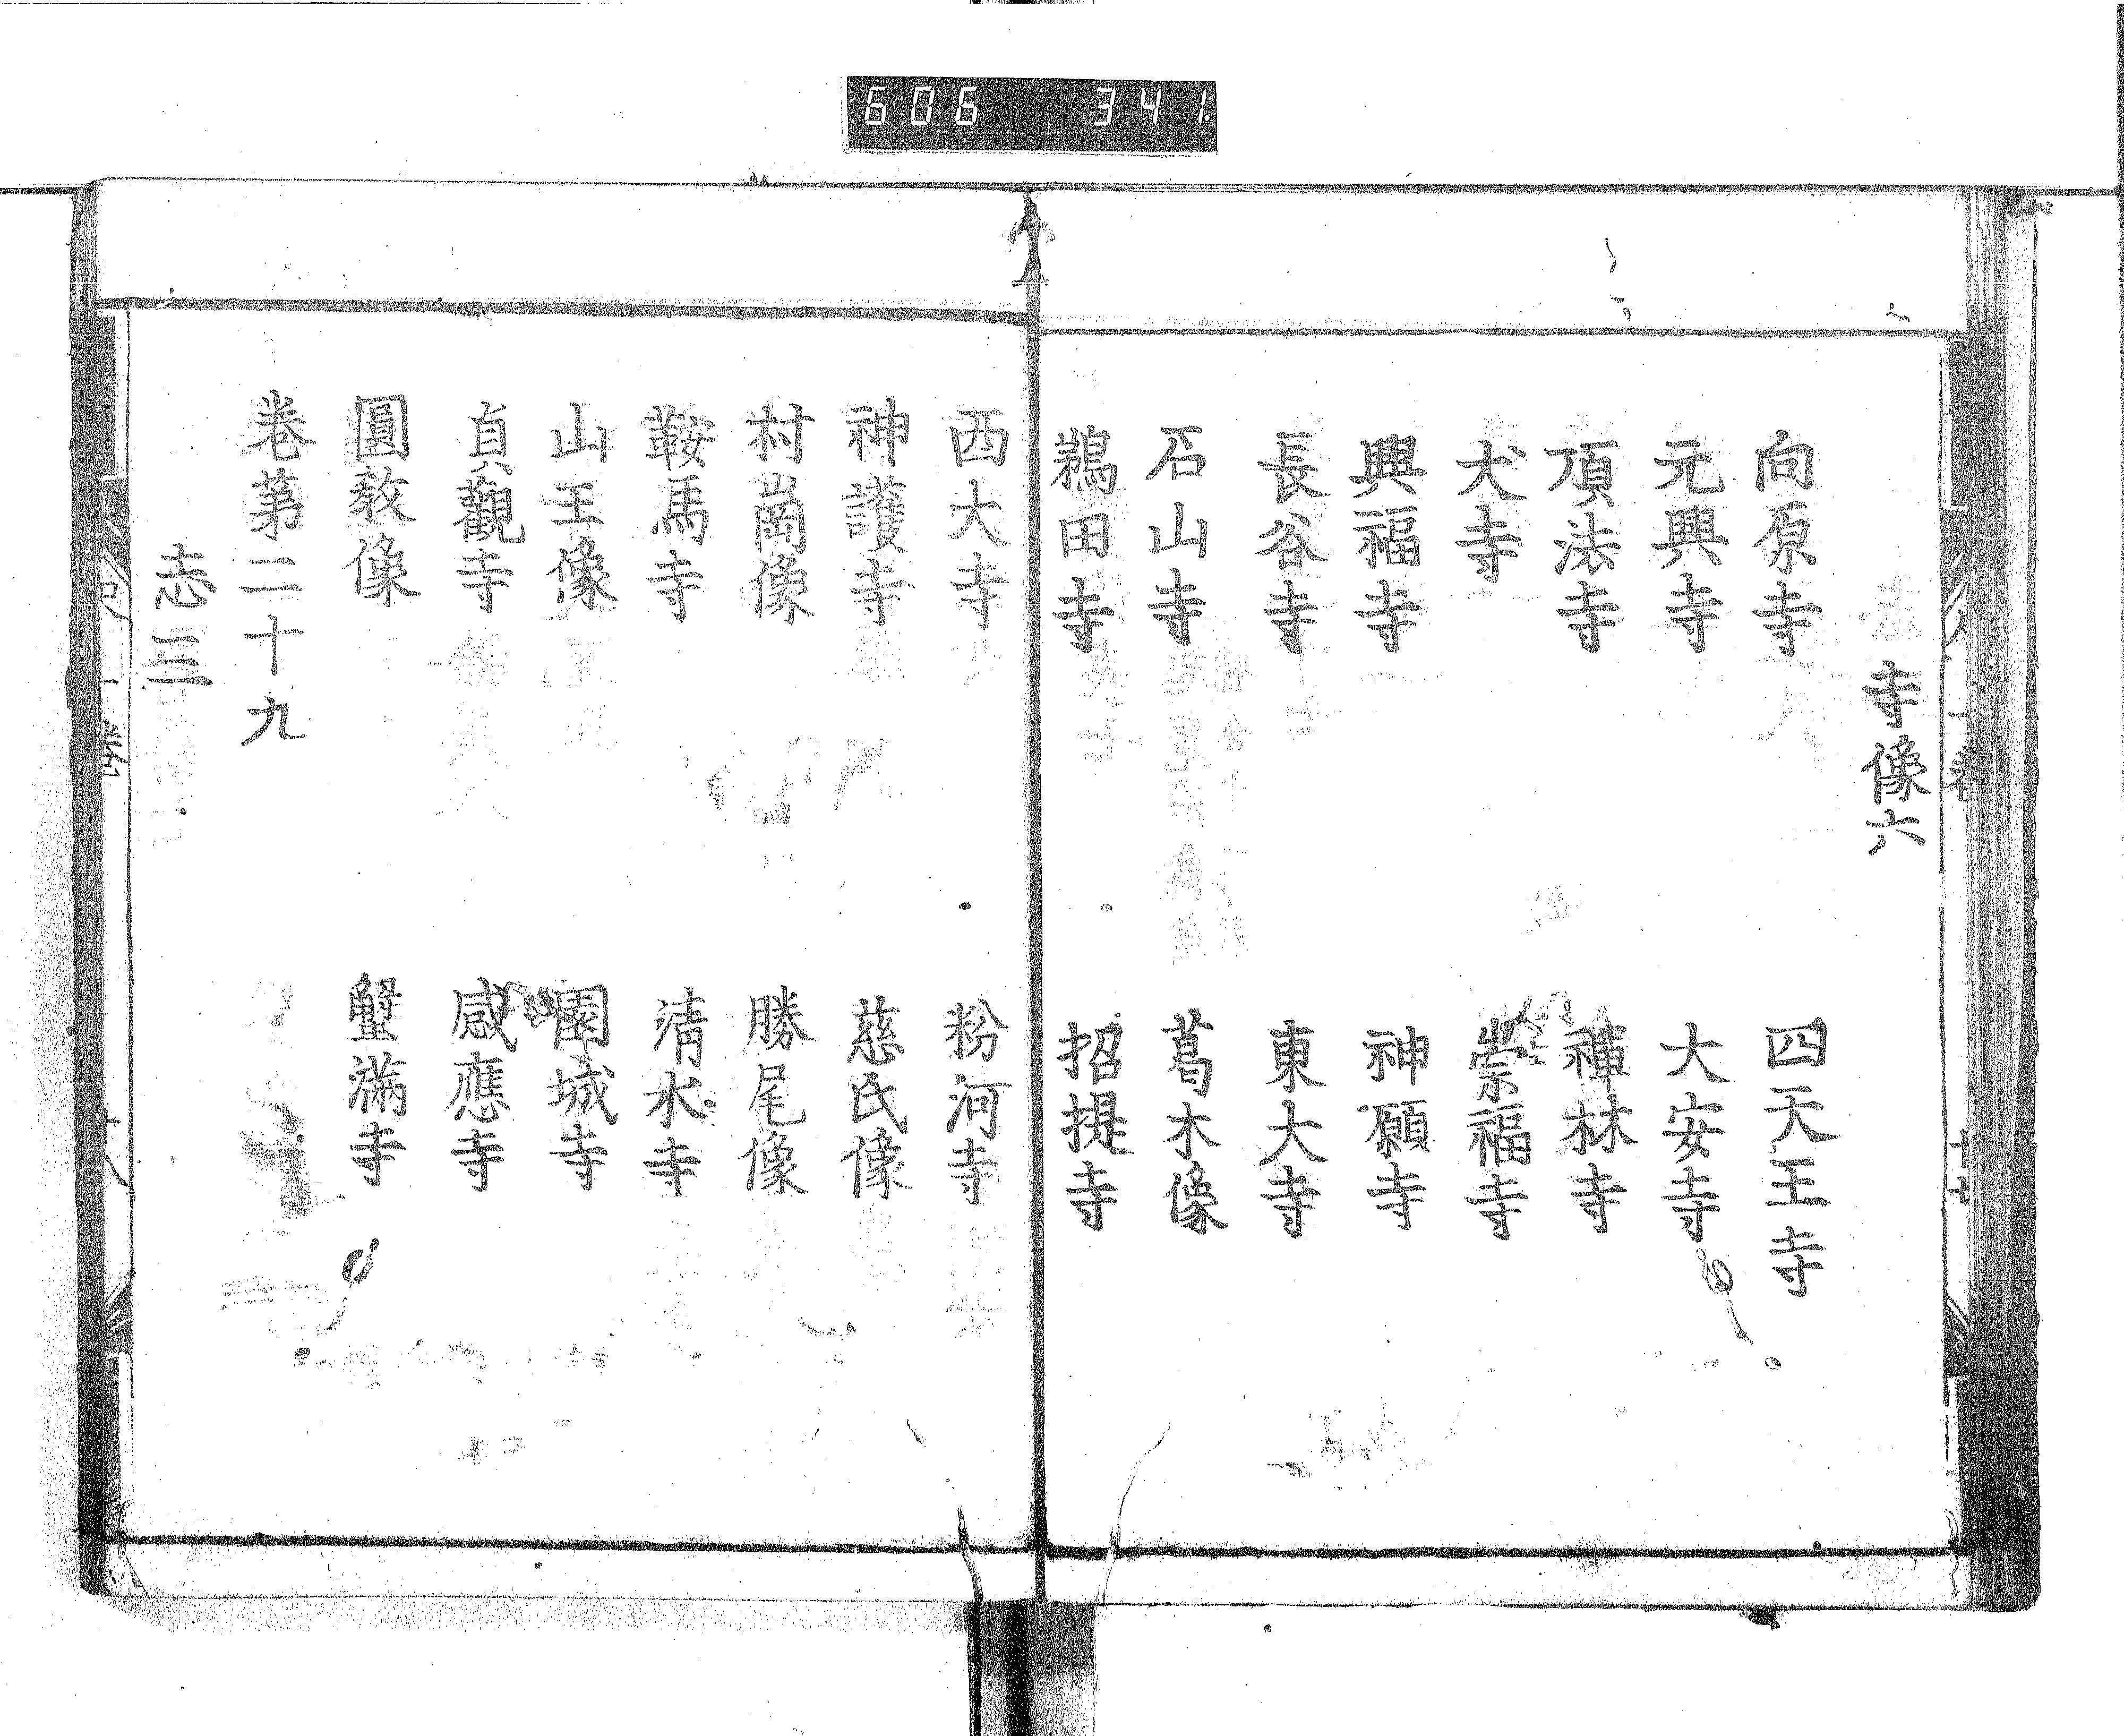 606 341
寺像六
向原寺 四天王寺
元興寺 大安寺
頂法寺 禪林寺
犬寺 崇福寺
興福寺 神願寺
長谷寺 東大寺
石山寺 葛木像
鵜田寺 招提寺
西大寺 粉河寺
神護寺 慈氏像
村崗像 勝尾像
鞍馬寺 清水寺
山王像 園城寺
貞觀寺 感應寺
圓教像 蟹滿寺
卷第二十九
志三